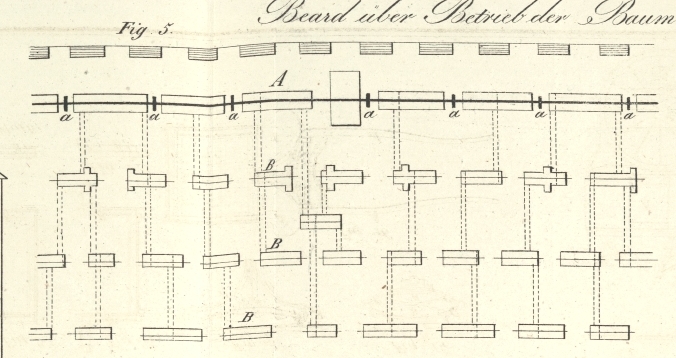 Beard über Betrieb der Baum
Fig. 5.
A
a a a a a a a
B
B
B